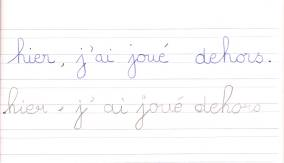 hier, j'ai joué dehors.
hier - j' ai joué dehors